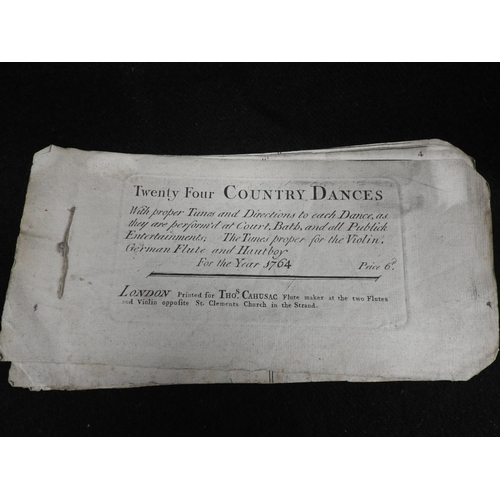 4
Twenty Four COUNTRY DANCES
With proper Tunes and Directions to each Dance, as
they are perform'd at Court, Bath, and all Publick
Entertainments; The Tunes proper for the Violin,
German Flute and Hautboy
For the Year 1764 Price 6d.
LONDON Printed for THOs. CAHUSAC Flute maker at the two Flutes
and Violin opposite St. Clements Church in the Strand.